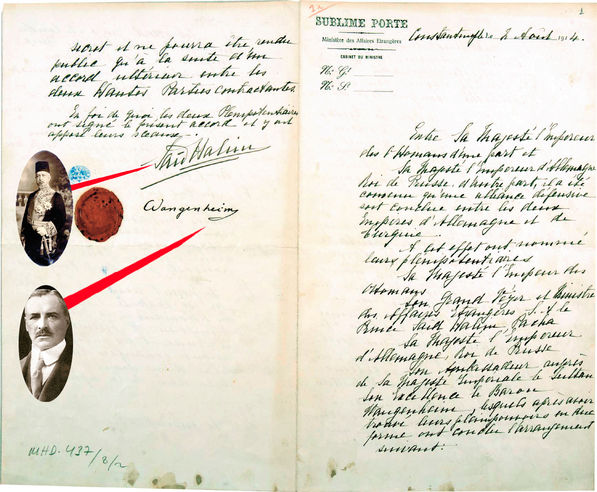 secret et ne pourra être rendu
public qu'à la suite d'un
accord ultérieur entre les
deux Hautes Parties contractantes.
En foi de quoi les deux Plénipotentiaires
ont signé le présent accord et y ont
apposé leurs sceaux.
Saïd Halim
Wangenheim
MHD. 437/8/2
1
SUBLIME PORTE
Ministère des Affaires Etrangères
CABINET DU MINISTRE
No. G!
No. P!
Constantinople 2 Août 1914.
Entre Sa Majesté l'Empereur
des Ottomans d'une part et
Sa Majesté l'Empereur d'Allemagne
Roi de Prusse d'autre part, il a été
convenu qu'une alliance défensive
soit conclue entre les deux
Empires d'Allemagne et de
Turquie.
A cet effet ont nommé
leurs plénipotentiaires
Sa Majesté l'Empereur des
Ottomans
Son Grand Vézir et Ministre
des Affaires Etrangères S. A. le
Prince Saïd Halim Pacha
Sa Majesté l'Empereur
d'Allemagne, Roi de Prusse
Son Ambassadeur auprès
de Sa Majesté Impériale le Sultan
Son Excellence le Baron
Wangenheim, lesquels après avoir
trouvé leurs pleinpouvoirs en due
forme ont conclu l'arrangement
suivant: